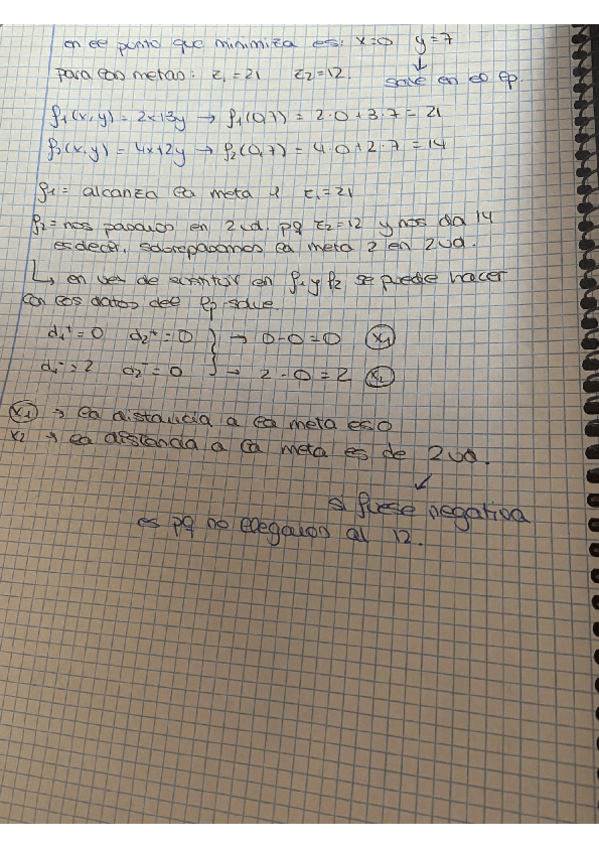 en el punto que minimiza es: x=0 y=7
↓
para los metas: z₁=21 z₂=12. sale en el lp.
f₁(x,y) = 2x+3y → f₁(0,7) = 2·0+3·7 = 21
f₂(x,y) = 4x+2y → f₂(0,7) = 4·0+2·7 = 14
f₁ = alcanza la meta 1 z₁=21
f₂ = nos pasamos en 2ud. pq z₂=12 y nos da 14
es decir, sobrepasamos la meta 2 en 2ud.
↳ en vez de sustituir en f₁ y f₂ se puede hacer
con los datos del lp solve.
d₁⁺=0 d₂⁺=0 } → 0-0=0 (x₁)
d₁⁻=2 d₂⁻=0 } → 2-0=2 (x₂)
(x₁) → la distancia a la meta es 0
x₂ → la distancia a la meta es de 2ud.
↙
si fuese negativa
es pq no llegamos al 12.